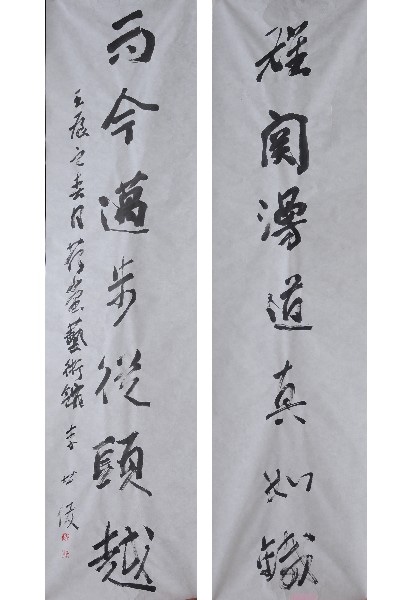 雄関漫道真如鐵
而今邁步從頭越
壬辰之春月藝術館李世俊